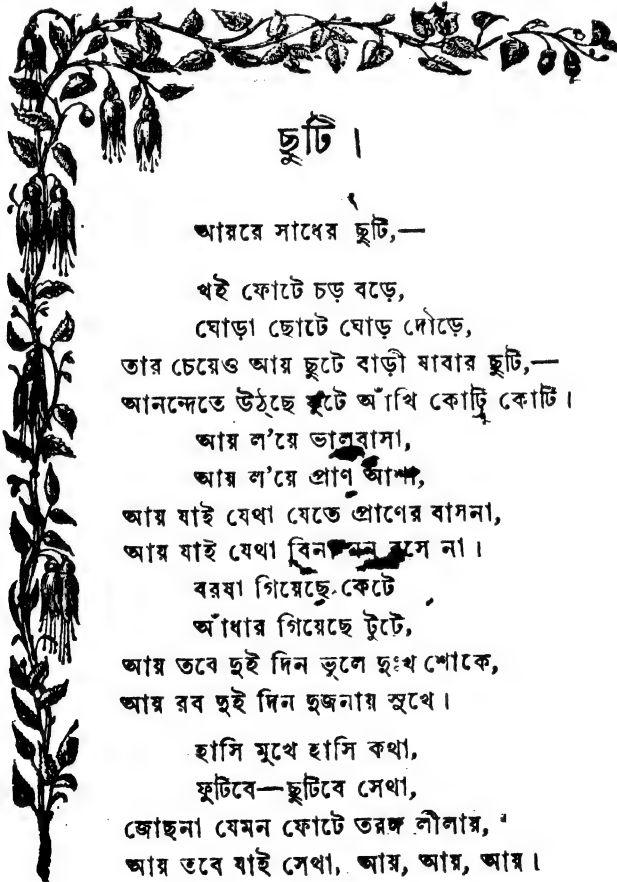 ছুটি ।
আয়রে সাধের ছুটি,—
খই ফোটে চড় বড়ে,
ঘোড়া ছোটে ঘোড় দৌড়ে,
তার চেয়েও আয় ছুটে বাড়ী যাবার ছুটি,—
আনন্দেতে উঠ্ছে ফুটে আঁখি কোটি কোটি ।
আয় ল'য়ে ভালবাসা,
আয় ল'য়ে প্রাণ আশা,
আয় যাই যেথা যেতে প্রাণের বাসনা,
আয় যাই যেথা বিনা মন বসে না ।
বরষা গিয়েছে কেটে
আঁধার গিয়েছে টুটে,
আয় তবে দুই দিন ভুলে দুঃখ শোকে,
আয় রব দুই দিন দুজনায় সুখে ।
হাসি মুখে হাসি কথা,
ফুটিবে—ছুটিবে সেথা,
জোছনা যেমন ফোটে তরঙ্গ লীলায়,
আয় তবে যাই সেথা, আয়, আয়, আয় ।